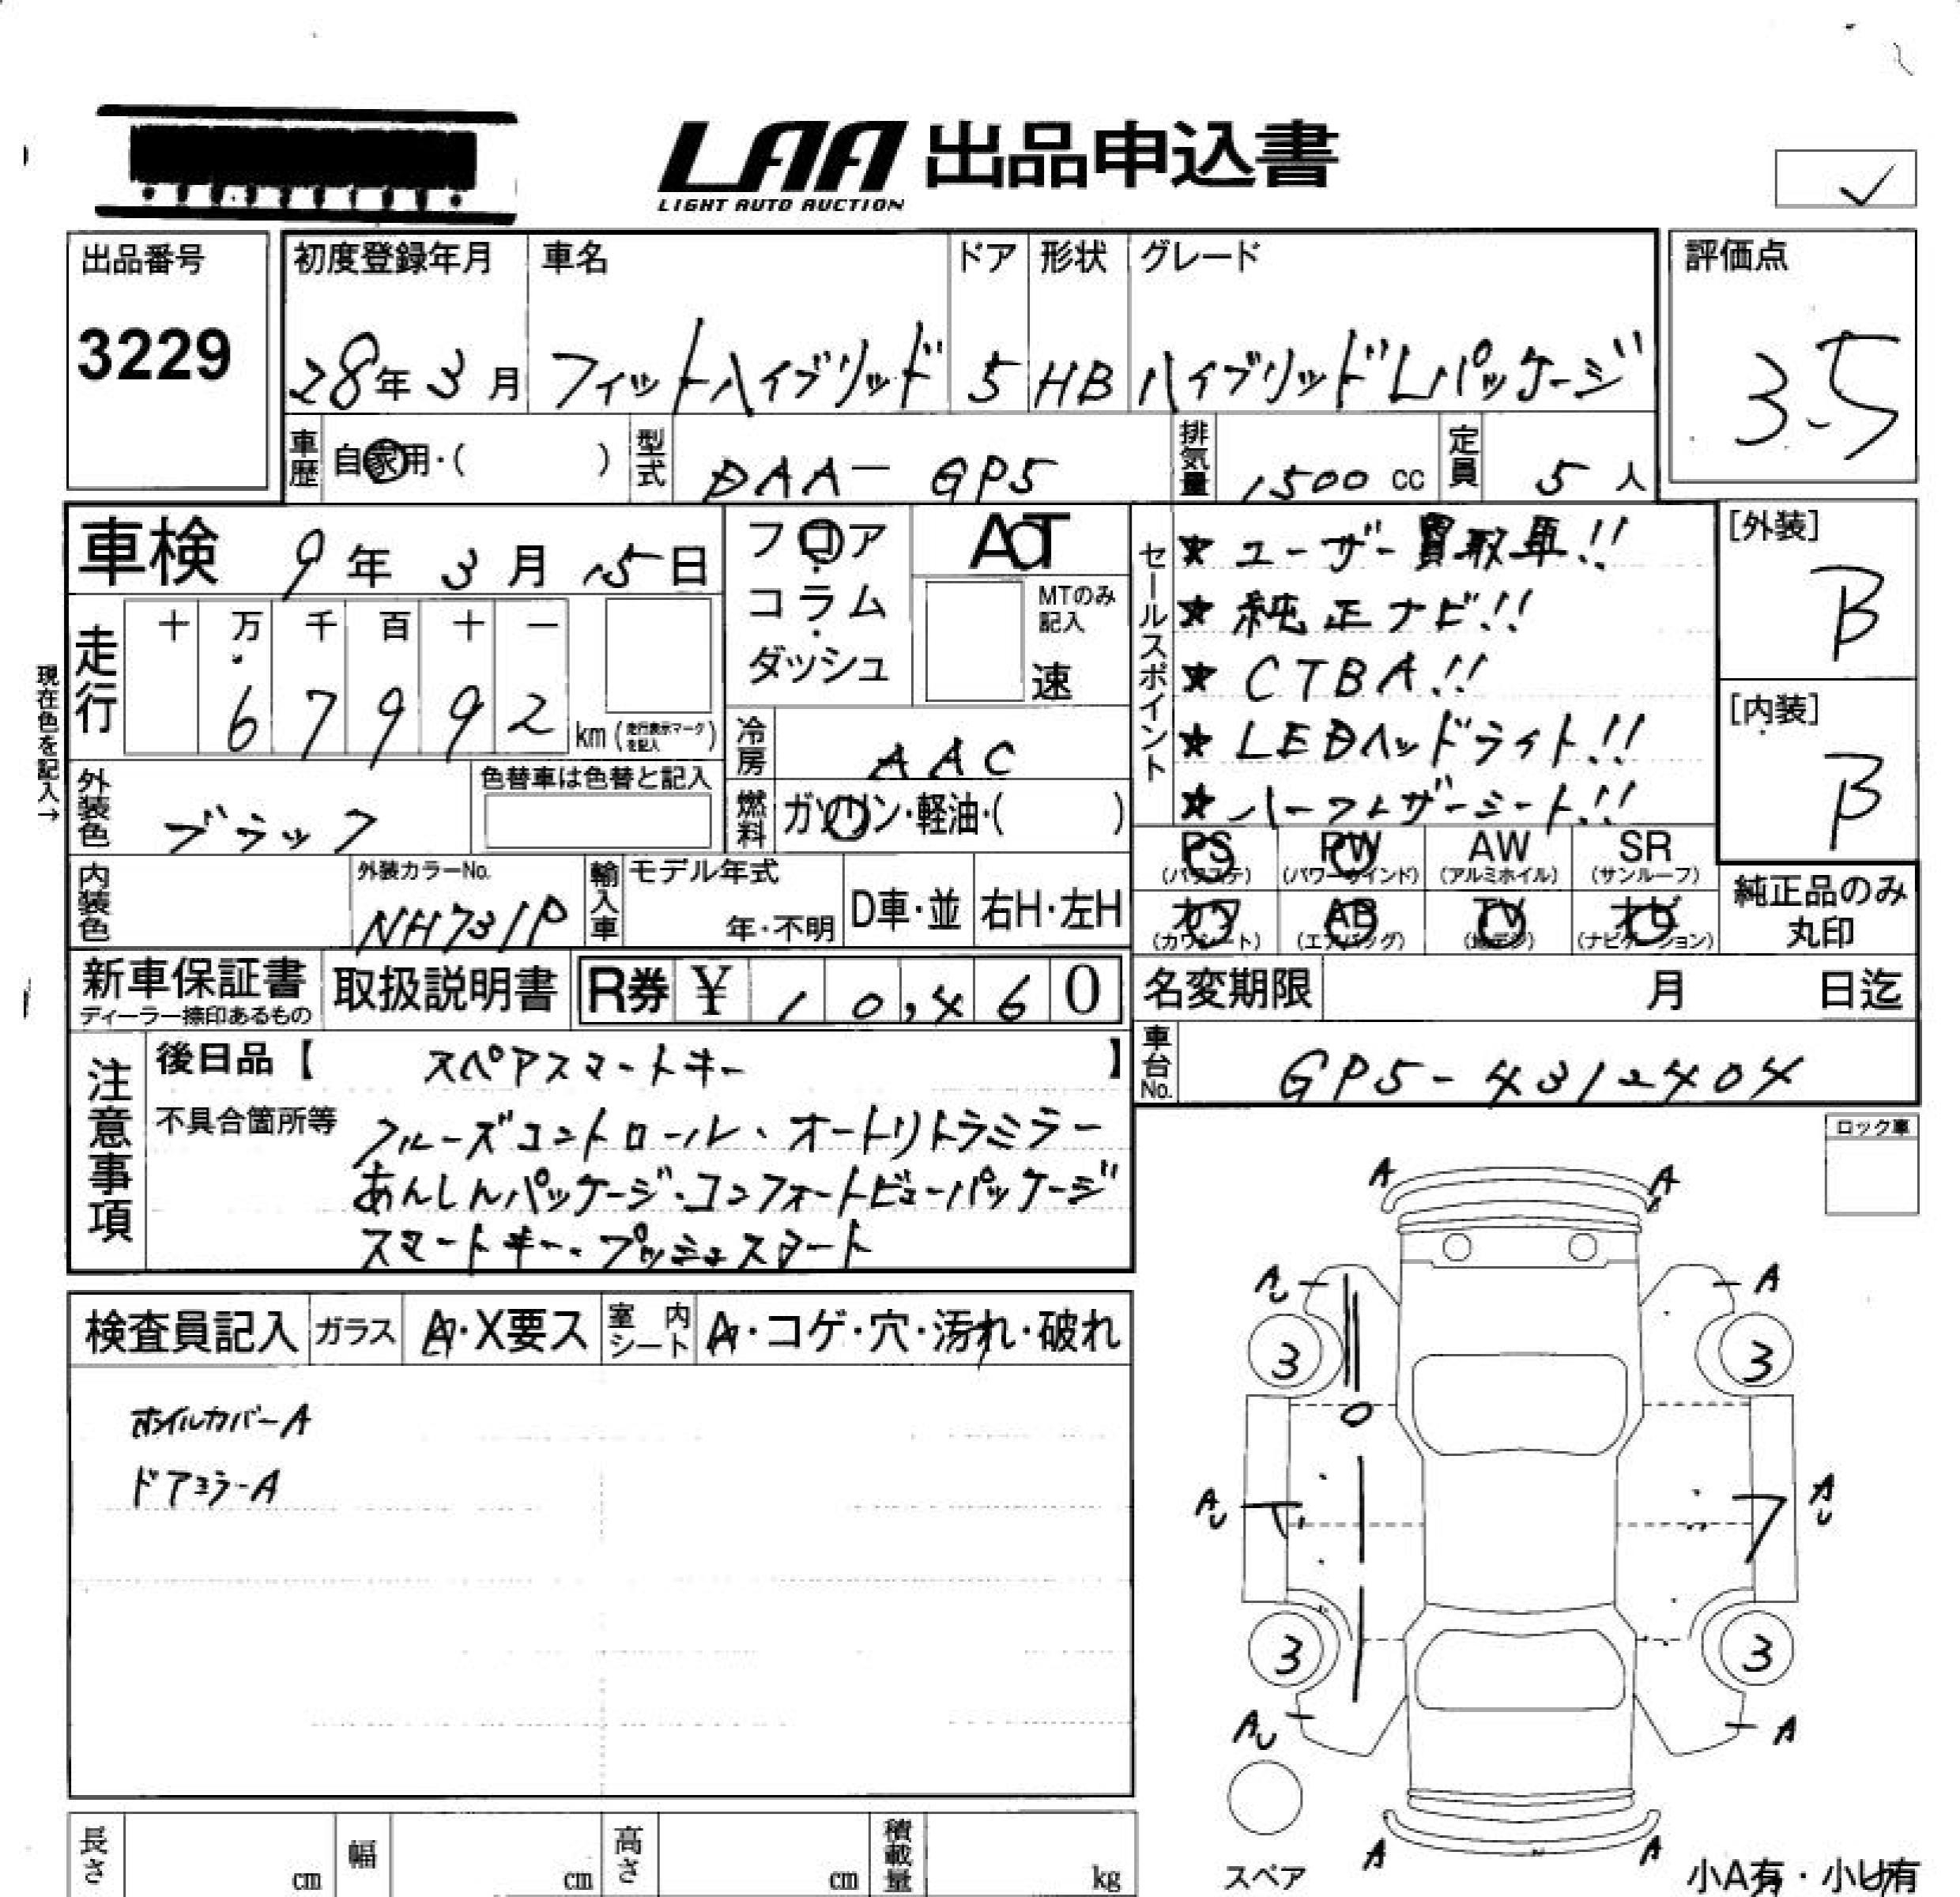 LAA 出品申込書
LIGHT AUTO AUCTION
出品番号
3229
初度登録年月
28年3月
車名
フィットハイブリッド
ドア
5
形状
HB
グレード
ハイブリッドLパッケージ
評価点
3.5
車歴
自家用・( )
型式
DAA-GP5
排気量
1500 cc
定員
5人
車検 9年3月15日
フロア・コラム・ダッシュ
AT
MTのみ記入
速
セールスポイント
★ユーザー買取車!!
★純正ナビ!!
★CTBA!!
★LEDヘッドライト!!
★ハーフレザーシート!!
[外装]
B
[内装]
B
現在色を記入→
走行
十 万 千 百 十 一
6 7 9 9 2
km(走行表示マークを記入)
冷房
AAC
外装色
ブラック
色替車は色替と記入
燃料
ガソリン・軽油・( )
PS
(パワステ)
PW
(パワーウインド)
AW
(アルミホイル)
SR
(サンルーフ)
カワ
(カワシート)
AB
(エアバッグ)
TV
(地デジ)
ナビ
(ナビゲーション)
純正品のみ丸印
内装色
外装カラーNo.
NH731P
輸入車
モデル年式
年・不明
D車・並
右H・左H
新車保証書
ディーラー捺印あるもの
取扱説明書
R券 ¥ 10,460
名変期限 月 日迄
車台No.
GP5-4312404
注意事項
後日品【 スペアスマートキー 】
不具合箇所等
クルーズコントロール、オートリトラミラー
あんしんパッケージ・コンフォートビューパッケージ
スマートキー・プッシュスタート
ロック車
検査員記入
ガラス
A・X要ス
室内シート
A・コゲ・穴・汚れ・破れ
ホイルカバーA
ドアミラーA
A A
AU A
3 3
AU AU
3 3
AU A
A A
スペア
小A有・小U有
長さ cm
幅 cm
高さ cm
積載量 kg